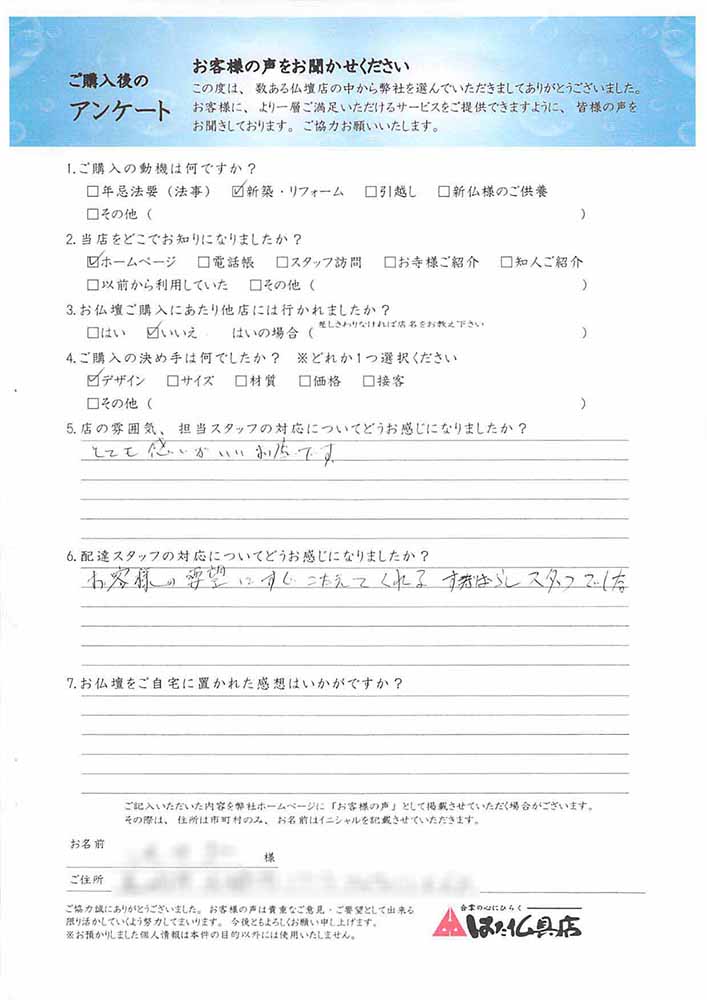 ご購入後の
アンケート
お客様の声をお聞かせください
この度は、数ある仏壇店の中から弊社を選んでいただきましてありがとうございました。
お客様に、より一層ご満足いただけるサービスをご提供できますように、皆様の声を
お聞きしております。ご協力お願いいたします。
1.ご購入の動機は何ですか?
□年忌法要(法事) ☑新築・リフォーム □引越し □新仏様のご供養
□その他( )
2.当店をどこでお知りになりましたか?
☑ホームページ □電話帳 □スタッフ訪問 □お寺様ご紹介 □知人ご紹介
□以前から利用していた □その他( )
3.お仏壇ご購入にあたり他店には行かれましたか?
□はい ☑いいえ はいの場合(差しさわりなければ店名をお教え下さい )
4.ご購入の決め手は何でしたか? ※どれか1つ選択ください
☑デザイン □サイズ □材質 □価格 □接客
□その他( )
5.店の雰囲気、担当スタッフの対応についてどうお感じになりましたか?
とても感じがいいお店です
6.配達スタッフの対応についてどうお感じになりましたか?
お客様の要望にすぐこたえてくれる すばらしスタッフでした
7.お仏壇をご自宅に置かれた感想はいかがですか?
ご記入いただいた内容を弊社ホームページに「お客様の声」として掲載させていただく場合がございます。
その際は、住所は市町村のみ、お名前はイニシャルを記載させていただきます。
お名前 様
ご住所
ご協力誠にありがとうございました。お客様の声は貴重なご意見・ご要望として出来る
限り活かしていくよう努力してまいります。今後ともよろしくお願い申し上げます。
※お預かりしました個人情報は本件の目的以外には使用いたしません。
合掌の心にひらく
はた仏具店